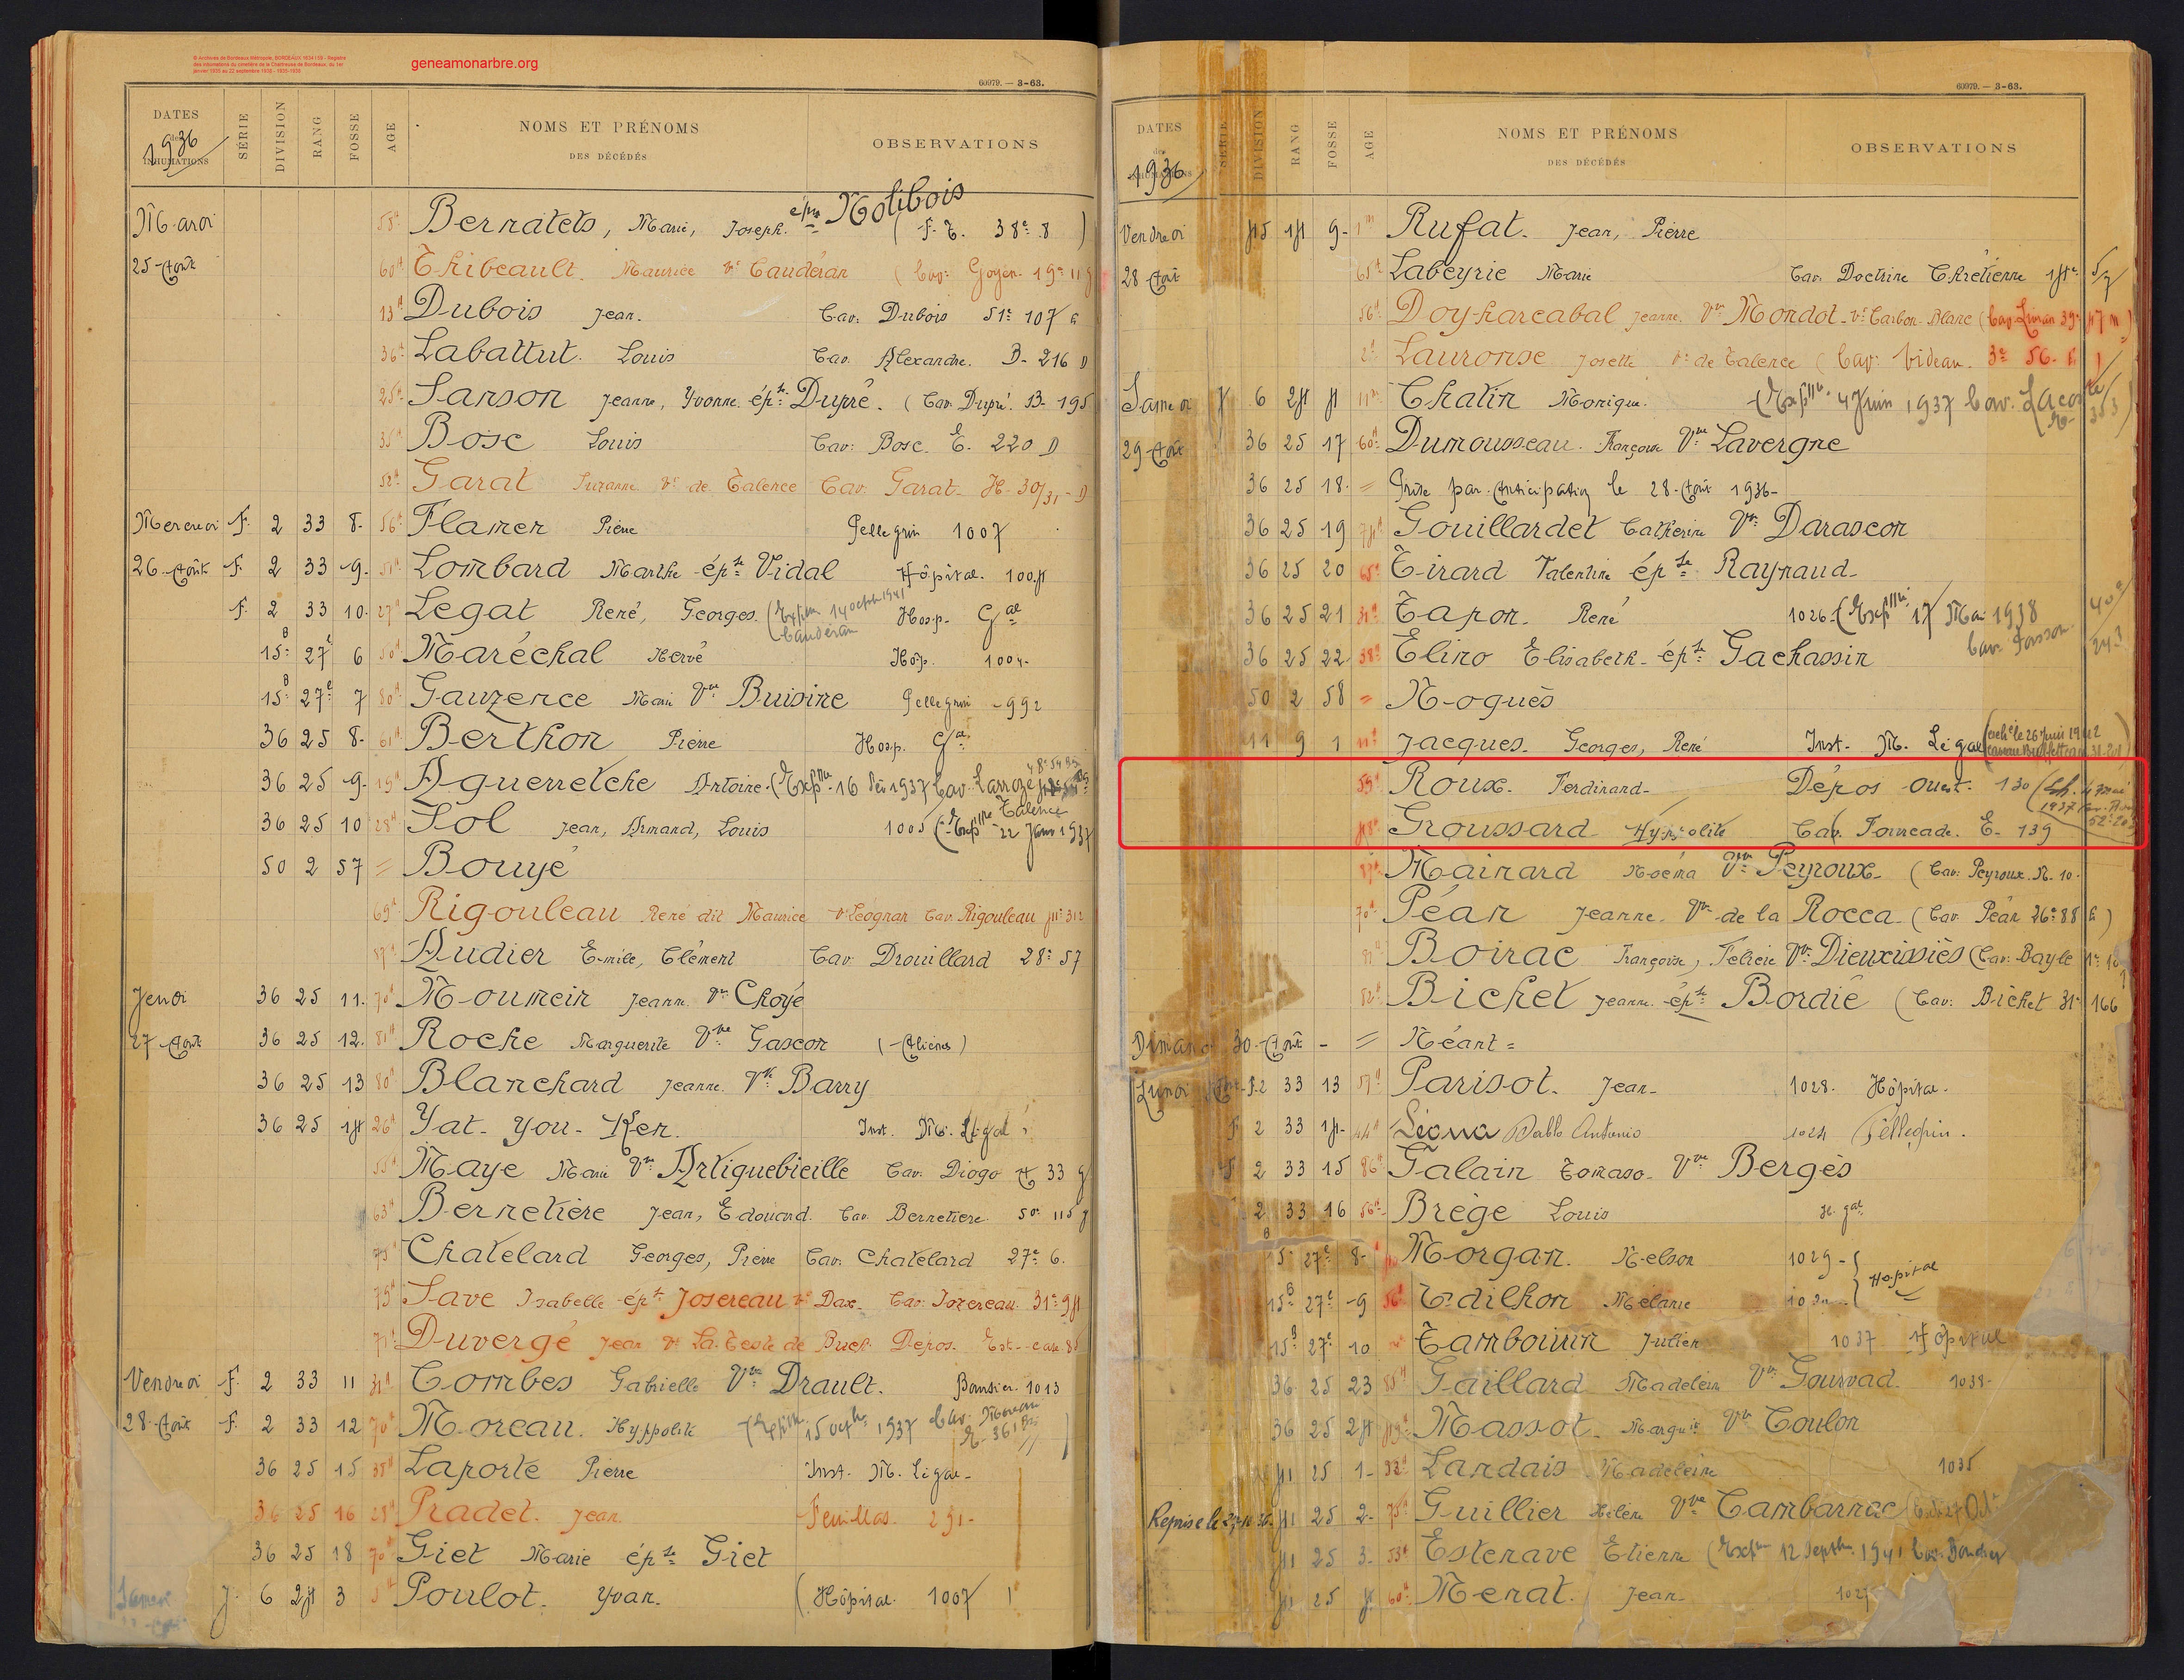 © Archives de Bordeaux Métropole, BORDEAUX 1634 I 59 - Registre
des inhumations du cimetière de la Chartreuse de Bordeaux, du 1er
janvier 1935 au 22 septembre 1936 - 1935-1936
geneamonarbre.org
60979. — 3-63.
DATES des INHUMATIONS SÉRIE DIVISION RANG FOSSE AGE NOMS ET PRÉNOMS DES DÉCÉDÉS OBSERVATIONS
1936
Mardi 55a Bernatets, Marie, Joseph. épse Molibois (F. T. 38e 8)
25 Août 60a Thibeault. Maurice vt Caudéran (Cav: Goyen. 19e 11 g
13a Dubois Jean. Cav: Dubois 51e 107 G
36a Labattut. Louis Cav. Alexandre. B- 216 D
25a Sanson Jeanne, Yvonne. épse Dupré. (Cav. Dupré. 13- 195
35a Bosc Louis Cav: Bosc. E. 220 D
52a Garat Suzanne vt de Talence Cav. Garat. H. 30/31 - D
Mercredi F. 2 33 8. 56a Flamen Pierre Pellegrin 1007
26 Août F. 2 33 9. 51a Lombard Marthe épse Vidal Hôpital.
F. 2 33 10. 27a Legat René, Georges. (Exp 14 octobre 1941 Caudéran Hosp. Gal
15B 27e 6 50a Maréchal Hervé Hôp. 1004-
15B 27e 7 80a Gauzence Marie Vve Buisine Pellegrin - 992
36 25 8. 61a Berthon Pierre Hosp. Gal
36 25 9. 19a Aguerretche Antoine. (Exp 16 1937 Cav. Larrozé
36 25 10 28a Sol Jean, Armand, Louis 1005 (Exp Talence 22 Janv 1937
50 2 57 = Bouyé
69a Rigouleau René dit Maurice vt Léognan Cav Rigouleau 312
87a Audier Emile, Clément Cav Drouillard 28e 57
Jeudi 36 25 11. 70a Moumein Jeanne Vve Choyé
27 Août 36 25 12. 81a Roche Marguerite Vve Gascon (Aliénés)
36 25 13 80a Blanchard Jeanne. Vve Barry
36 25 14 26a Yat - You - Ken. Inst. M. Légal
55a Maye Marie Vve Artiguebieille Cav. Diogo 33 g
63a Bernetière Jean, Edouard. Cav Bernetière. 50e 115 g
75a Chatelard Georges, Pierre Cav. Chatelard 27e 6.
75a Save Isabelle épse Josereau vt Dax. Cav. Josereau. 31e 94
71a Duvergé Jean vt La Teste de Buch Dépos. Est - case 85
Vendredi F. 2 33 11 31a Combes Gabrielle Vve Drault. 1013
28 Août F. 2 33 12 70a Moreau. Hyppolite 15 oct 1937 Cav. Moreau
36 25 15 38a Laporte Pierre Inst. M. Légal
36 25 16 28a Pradet. Jean Feuillas. 291-
36 25 18 70a Giet Marie épse Giet
J. 6 24 3 Poulot. Yvan. (Hôpital 1007)
60979. — 3-63.
DATES des INHUMATIONS SÉRIE DIVISION RANG FOSSE AGE NOMS ET PRÉNOMS DES DÉCÉDÉS OBSERVATIONS
1936
Vendredi 45 14 9- 1m Rufat. Jean, Pierre
28 Août 65a Labeyrie Marie Cav. Doctrine Chrétienne 14e 57
56a Doyharcabal Jeanne. Vve Mondot - vt Carbon-Blanc
2a Lauronse Josette vt de Talence (Cav: Videau. 3e 56.
Samedi J 6 24 4 11m Chatin Monique. (Exp 4 Juin 1937 Cav. Lacoste 353)
29 Août 36 25 17 60a Dumousseau. Françoise Vve Lavergne
36 25 18. = Prise par Anticipation le 28 Août 1936-
36 25 19 74a Gouillardet Catherine Vve Darascon
36 25 20 65a Tirard Valentine épse Raynaud
36 25 21 31a Tapon. René 1026 (Exp 17 Mai 1938 Cav. 40e 243
36 25 22 38a Elino Elisabeth épse Gachassin
50 2 58 = Noguès
11 9 1 Jacques. Georges, René Inst. M. Légal (le 26 Juin 1942
59a Roux. Ferdinand- Dépos Ouest. 130 (Exh. 4 mai 1937
Groussard Hyppolite Cav. Fourcade. E- 139
Mainard Noéna Vve Peyroux- (Cav: Peyroux. R. 10-
70a Péan Jeanne. Vve de la Rocca. (Cav Péan 26e 88 G)
Boirac Françoise, Félicie Vve Dieuxissiès (Cav: Bayle
82a Bichet Jeanne. épse Bordié (Cav: Bichet 31e 166
Dimanche 30 Août - = Néant =
Lundi 2 33 13 57a Parisot. Jean- 1028. Hôpital.
F 2 33 14- 44a Léona Pablo Antonio 1024 Pellegrin.
F 2 33 15 86a Galain Tomaso- Vve Bergès
2 33 16 56a Brège Louis H. gal
15B 27e 8- Morgan. Nelson 1029 -
15B 27e 9 56a Edilhon Mélanie Hôpital
15B 27e 10 Tambourin Julien 1037 Hôpital
36 25 23 85a Gaillard Madeleine Vve Gourvad. 1038-
36 25 24 49a Massot. Marguite Vve Coulon
41 25 1- 32a Landais. Madeleine 1035
Reprise le 41 25 2- 75a Guillier Hélène Vve Cambarnac
41 25 3- 53a Estenave Etienne (Exp 12 Septbre 1941 Cav.
41 25 4 60a Menat. Jean- 1027